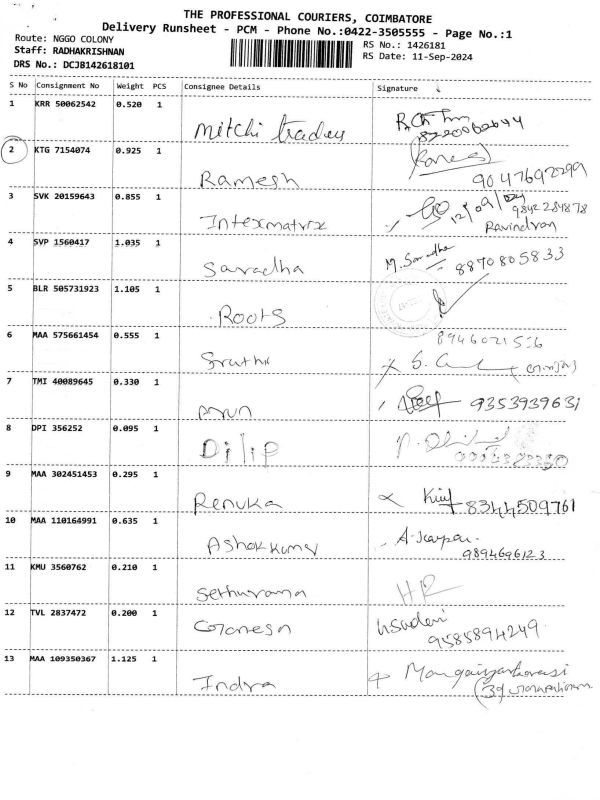 THE PROFESSIONAL COURIERS, COIMBATORE
Delivery Runsheet - PCM - Phone No.:0422-3505555 - Page No.:1
Route: NGGO COLONY
Staff: RADHAKRISHNAN
DRS No.: DCJB142618101
RS No.: 1426181
RS Date: 11-Sep-2024
S No Consignment No Weight PCS Consignee Details Signature
1 KRR 50062542 0.520 1 Mitchi traders
2 KTG 7154074 0.925 1 Ramesh
9047692299
3 SVK 20159643 0.855 1 Intexmatrix
12/09/24
9842284878
Ravindran
4 SVP 1560417 1.035 1 Saradha M. Saradha
8870805833
5 BLR 505731923 1.105 1 Roots
6 MAA 575661454 0.555 1
7 TMI 40089645 0.330 1 Arun 9353939631
8 DPI 356252 0.095 1 Dilip
9 MAA 302451453 0.295 1 Renuka 8344509761
10 MAA 110164991 0.635 1 Ashok kumar
9894696123
11 KMU 3560762 0.210 1 Sethurama HR
12 TVL 2837472 0.200 1 Ganesn
9585894249
13 MAA 109350367 1.125 1 Indra